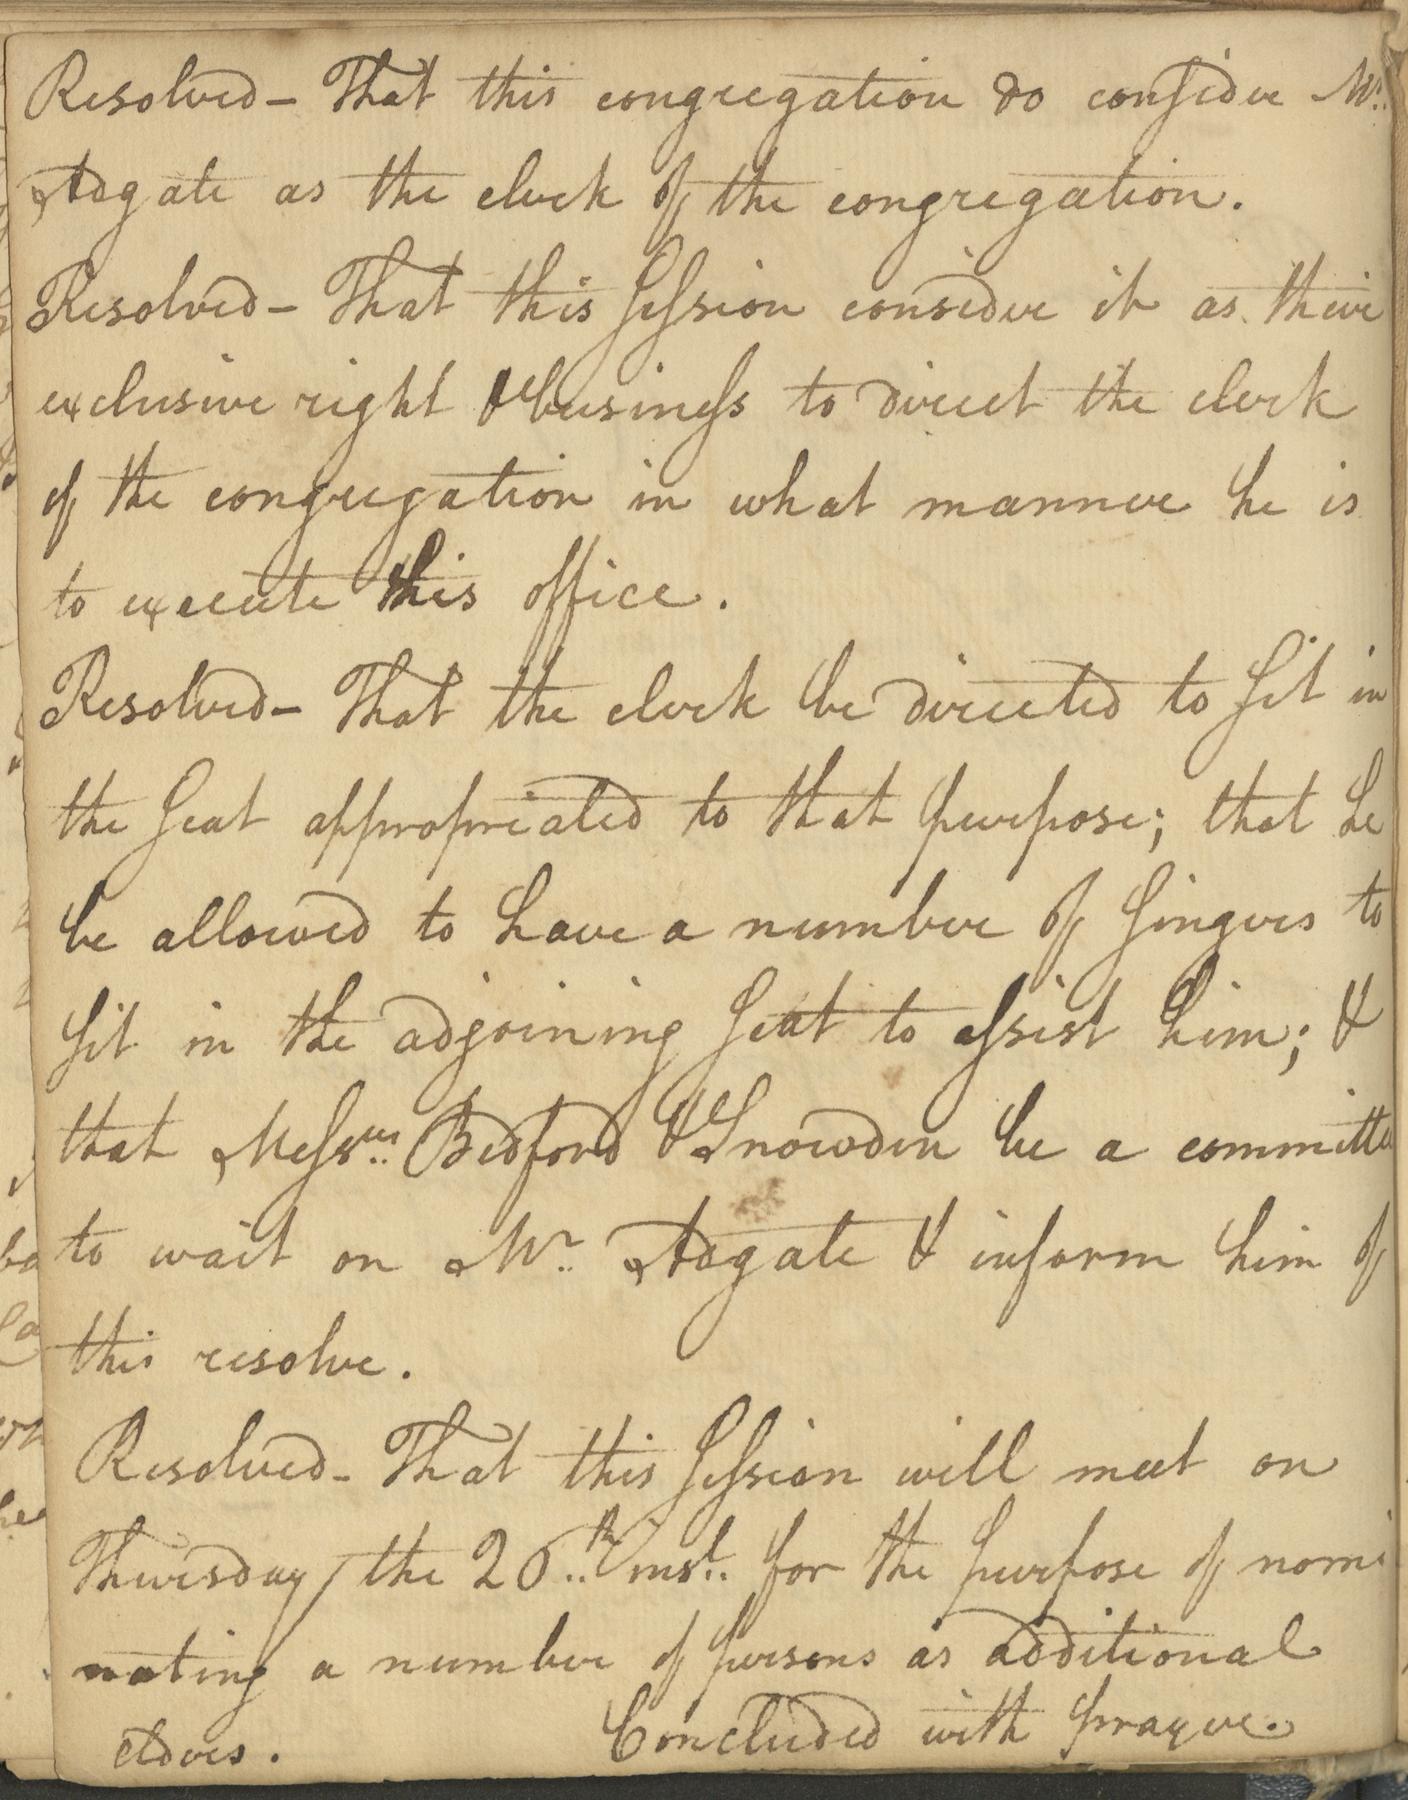 Resolved– That this congregation do consider Mr.
Adgate as the clerk of the congregation.
Resolved– That this session consider it as their
exclusive right & business to direct the clerk
of the congregation in what manner he is
to execute this office.
Resolved– That the clerk be directed to sit in
the seat appropriated to that purpose; that he
be allowed to have a number of singers to
sit in the adjoining seat to assist him; &
that Messrs. Bedford & Snowden be a committee
to wait on Mr. Adgate & inform him of
this resolve.
Resolved– That this session will meet on
Thursday the 26th. inst. for the purpose of nomi
nating a number of persons as additional
elders. Concluded with prayer.